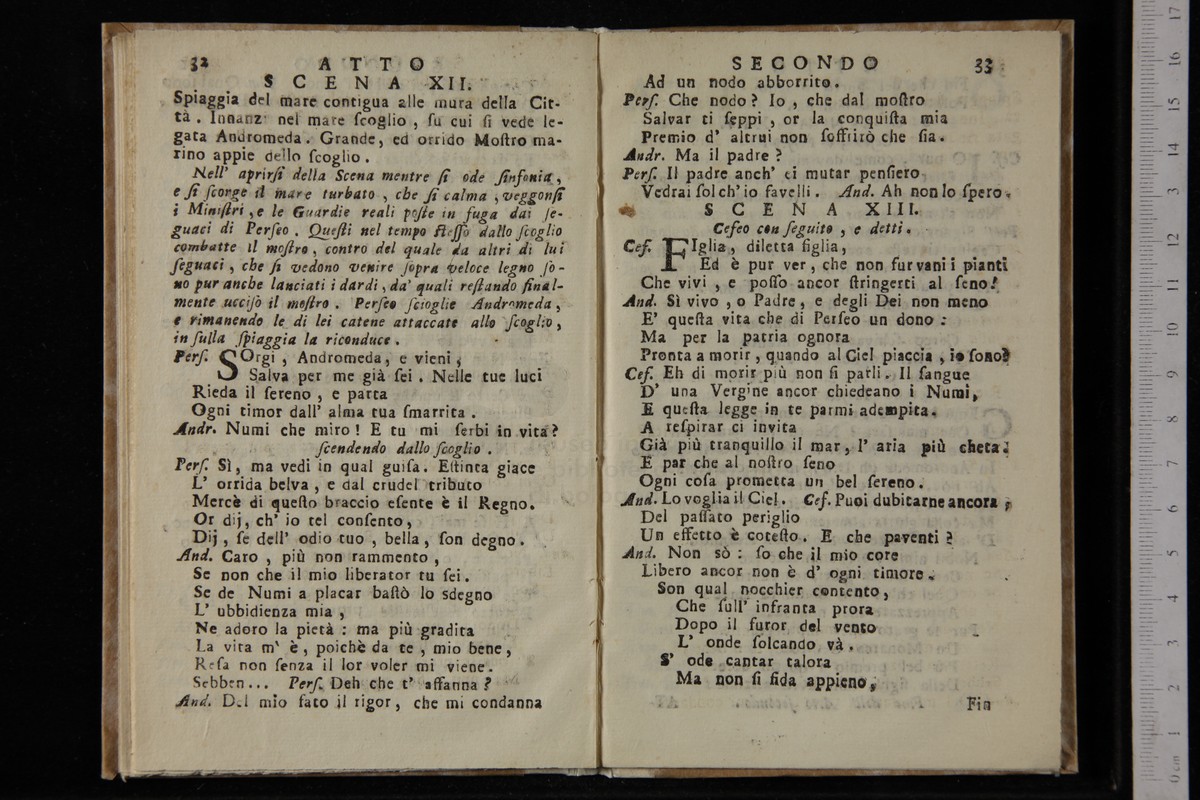 32 ATTO
SCENA XII.
Spiaggia del mare contigua alle mura della Cit-
tà . Innanz nel mare ſcoglio , ſu cui ſi vede le-
gata Andromeda. Grande, ed orrido Moſtro ma-
rino appie dello ſcoglio .
Nell' aprirſi della Scena mentre ſi ode ſinfonia,
e ſi ſcorge il mare turbato , che ſi calma , veggonſi
i Miniſtri , e le Guardie reali poſte in fuga dai ſe-
guaci di Perſeo . Queſti nel tempo ſteſſo dallo ſcoglio
combatte il moſtro , contro del quale da altri di lui
ſeguaci , che ſi vedono venire ſopra veloce legno ſo-
no pur anche lanciati i dardi , da' quali reſtando final-
mente ucciſo il moſtro . Perſeo ſcioglie Andromeda ,
e rimanendo le di lei catene attaccate allo ſcoglio ,
in ſulla ſpiaggia la riconduce .
Perſ. SOrgi , Andromeda, e vieni ,
Salva per me già ſei . Nelle tue luci
Rieda il ſereno , e parta
Ogni timor dall' alma tua ſmarrita .
Andr. Numi che miro ! E tu mi ſerbi in vita ?
ſcendendo dallo ſcoglio .
Perſ. Sì, ma vedi in qual guiſa. Eſtinta giace
L' orrida belva , e dal crudel tributo
Mercè di queſto braccio eſente è il Regno.
Or dij, ch' io tel conſento,
Dij , ſe dell' odio tuo , bella , ſon degno .
And. Caro , più non rammento ,
Se non che il mio liberator tu ſei .
Se de Numi a placar baſtò lo sdegno
L' ubbidienza mia ,
Ne adoro la pietà : ma più gradita
La vita m' è , poichè da te , mio bene ,
Reſa non ſenza il lor voler mi viene .
Sebben ... Perſ. Deh che t' affanna ?
And. Del mio fato il rigor , che mi condanna
SECONDO 33
Ad un nodo abborrito.
Perſ. Che nodo ? Io , che dal moſtro
Salvar ti ſeppi , or la conquiſta mia
Premio d' altrui non ſoffrirò che ſia.
Andr. Ma il padre ?
Perſ. Il padre anch' ei mutar penſiero
Vedrai ſol ch' io favelli . And. Ah non lo ſpero .
SCENA XIII.
Cefeo con ſeguito , e detti .
Cef. FIglia, diletta figlia,
Ed è pur ver , che non fur vani i pianti
Che vivi , e poſſo ancor ſtringerti al ſeno!
And. Sì vivo , o Padre , e degli Dei non meno
E' queſta vita che di Perſeo un dono :
Ma per la patria ognora
Pronta a morir , quando al Ciel piaccia , io ſono?
Cef. Eh di morir più non ſi parli. Il ſangue
D' una Vergine ancor chiedeano i Numi,
E queſta legge in te parmi adempita.
A reſpirar ci invita
Già più tranquillo il mar, l' aria più cheta.
E par che al noſtro ſeno
Ogni coſa prometta un bel ſereno .
And. Lo voglia il Ciel . Cef. Puoi dubitarne ancora ,
Del paſſato periglio
Un effetto è coteſto . E che paventi ?
And. Non sò : ſo che il mio core
Libero ancor non è d' ogni timore .
Son qual nocchier contento ,
Che ſull' infranta prora
Dopo il furor del vento
L' onde ſolcando và .
S' ode cantar talora
Ma non ſi fida appieno ,
Fin